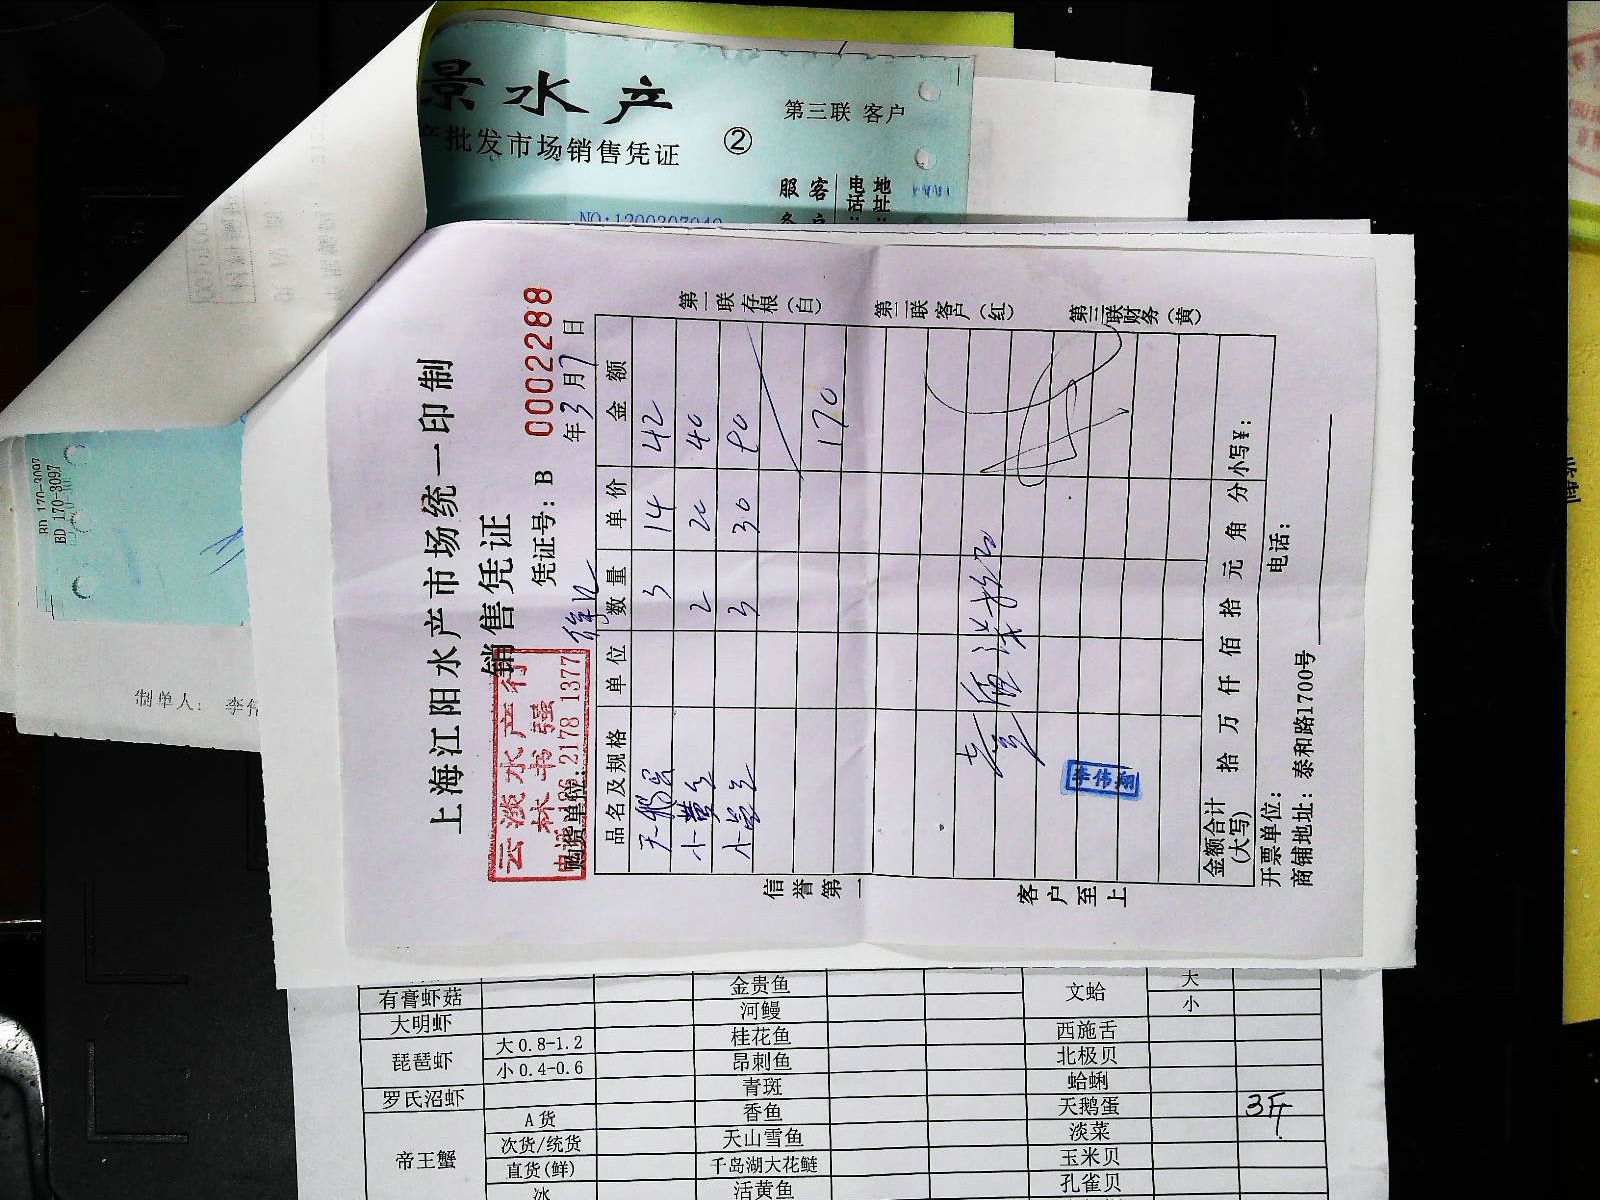 景水产
产批发市场销售凭证
②
第三联 客户
服
客户
电话:
地址:
NO:1200307040
上海江阳水产市场统一印制
销售凭证
凭证号: B 0002288
年3月7日
云淡水产行
林书强
2178 1377
购货单位:
徐汇
品名及规格 单位 数量 单价 金额
天鹅蛋 3 14 42
小黄 2 20 40
3 30 90
170
李伟翔
金额合计(大写) 拾 万 仟 佰 拾 元 角 分 小写¥:
开票单位: 电话:
商铺地址: 泰和路1700号
第一联存根(白)
第二联客户(红)
第三联财务(黄)
信誉第一
客户至上
BD 170-3097
BD 170-3097
制单人: 李伟
有膏虾菇 金贵鱼 文蛤 大
河鳗 小
大明虾 桂花鱼 西施舌
琵琶虾 大0.8-1.2 昂刺鱼 北极贝
小0.4-0.6 青斑 蛤蜊
罗氏沼虾 香鱼 天鹅蛋 3斤
帝王蟹 A货 天山雪鱼 淡菜
次货/统货 千岛湖大花鲢 玉米贝
直货(鲜) 活黄鱼 孔雀贝
冰